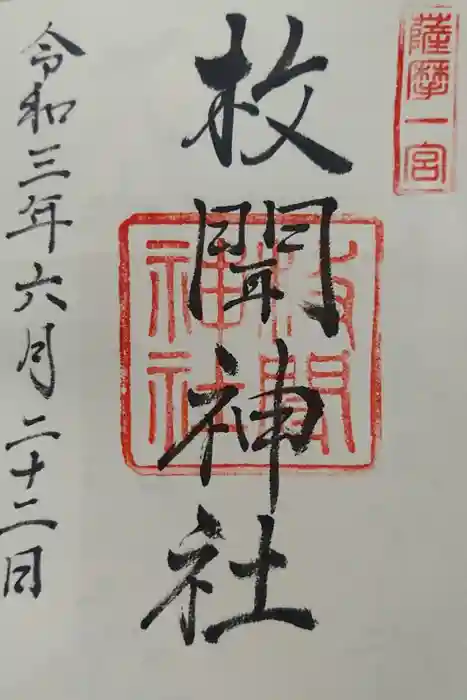 薩摩一宮
枚聞神社
枚聞
神社
令和三年六月二十二日